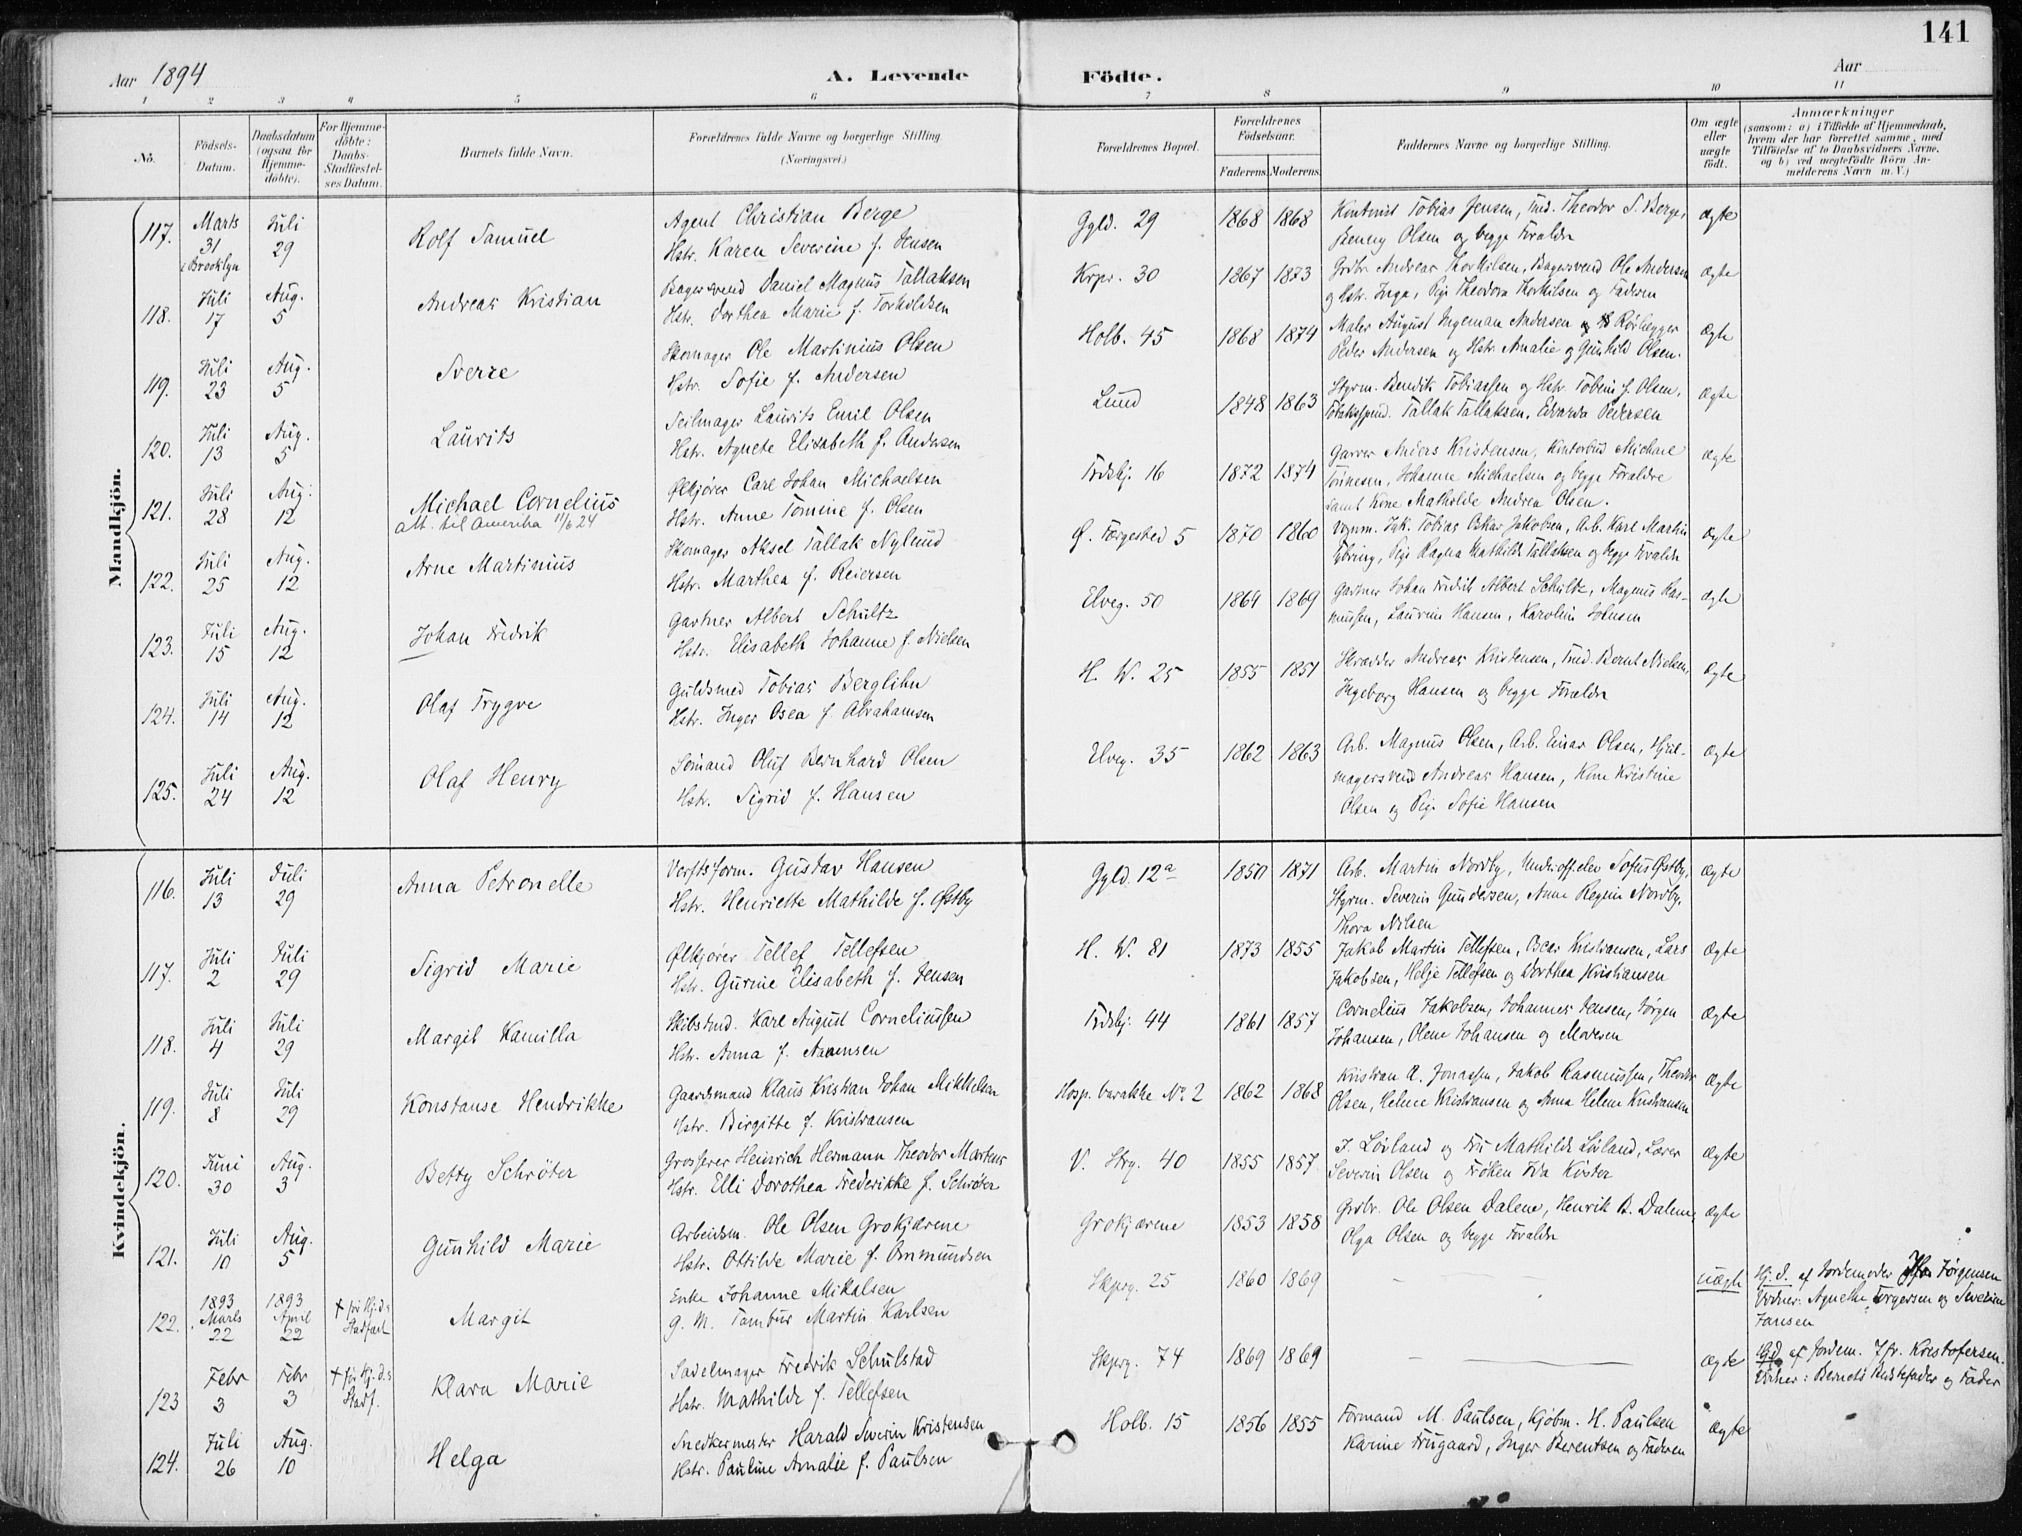 141
Aar 1894
A. Levende Födte.
Aar
1 2 3 4 5 6 7 8 9 10 11
No.
Födsels-Datum.
Daabsdatum (ogsaa for Hjemme-döbte).
For Hjemme-döbte: Daabs-Stadfæstel-ses Datum.
Barnets fulde Navn.
Forældrenes fulde Navne og borgerlige Stilling.
(Næringsvei.)
Forældrenes Bopæl.
Forældrenes Födselsaar.
Faderens. Moderens.
Faddernes Navne og borgerlige Stilling.
Om ægte eller uægte födt.
Anmærkninger
(saasom: a) i Tilfælde af Hjemmedaab,
hvem der har forrettet samme, med
Tilföielse af to Daabsvidners Navne,
og b) ved uægtefödte Börn An-
melderens Navn m. V.)
Mandkjön.
117. Marts 31 i Brooklyn Juli 29 Rolf Samuel
Agent Christian Berge
Hstr. Karen Severine f. Jensen
Gyld. 29 1868 1868
Kontorist Tobias Jensen, Tmd. Theodor S. Berge,
Jenny Olsen og begge Forældre
ægte
118. Juli 17 Aug. 5 Andreas Kristian
Bagersvend Daniel Magnus Tallaksen
Hstr. Dorthea Marie f. Torkildsen
Krpr. 30 1867 1873
Grdbr. Andreas Thorkilsen, Bagersvend Ole Andersen
og Hstr. Inga, Pige Theodora Thorkilsen og Faderen
ægte
119. Juli 23 Aug. 5 Sverre
Skomager Ole Martinius Olsen
Hstr. Sofie f. Andersen
Holb. 45 1868 1874
Maler August Ingeman Andersen Rørlægger
Peder Andersen og Hstr. Amalie og Gunhild Olsen.
Ægte
120. Juli 13 Aug. 5 Laurits
Seilmager Laurits Emil Olsen
Hstr. Agnete Elisabeth f. Andersen
Lund 1848 1863
Styrm. Bendik Tobiassen og Hstr. Tobine f. Olsen,
Tallak Tallaksen, Edvarda Pedersen
Ægte
121. Juli 28 Aug. 12 Michael Cornelius
att. til Amerika 11/6 24
Ølkjører Carl Johan Michaelsen
Hstr. Anne Tomine f. Olsen
Tordskj. 16 1872 1874
Garver Anders Kristensen, Kontorbud Michael
Tønnesen, Johanne Michaelsen og begge Forældre
samt Kone Mathilde Andrea Olsen.
ægte
122. Juli 25 Aug. 12 Arne Martinius
Skomager Aksel Tallak Nylund
Hstr. Marthea f. Reiersen
Ø. Færgested 5 1870 1860
Vognm. Jak. Tobias Oskar Jakobsen, Arb. Karl Martin
Pige Ragna Mathilde Tallaksen og begge Forældre
ægte
123. Juli 15 Aug. 12 Johan Fredrik
Gartner Albert Schultz
Hstr. Elisabeth Johanne f. Nielsen
Elveg. 50 1864 1869
Gartner Johan Fredrik Albert Schultz, Magnus Ras-
mussen, Laurine Hansen, Karoline Johnsen
ægte
124. Juli 14 Aug. 12 Olaf Trygve
Guldsmed Tobias Berglihn
Hstr. Inger Osea f. Abrahamsen
H. W. 25 1855 1851
Skrædder Andreas Kristensen, Tmd. Bernt Nielsen,
Ingeborg Hansen og begge Forældre
Ægte
125. Juli 24 Aug. 12 Olaf Henry
Sømand Oluf Bernhard Olsen
Hstr. Sigrid f. Hansen
Elveg. 35 1862 1863
Arb. Magnus Olsen, Arb. Einar Olsen, Hjul-
magersvend Andreas Hansen, Kone Kristine
Olsen og Pige Sofie Hansen
Ægte
Kvindekjön.
116. Juli 13 Juli 29 Anna Petronelle
Verftsform. Gustav Hansen
Hstr. Henriette Mathilde f. Østby
Gyld. 12a 1850 1871
Arb. Martin Nordby, Underoff.elev Sofus Østby,
Styrm. Severin Gundersen, Anne Regine Nordby,
Thora Nilsen
Ægte
117. Juli 2 Juli 29 Sigrid Marie
Ølkjører Tellef Tellefsen
Hstr. Gurine Elisabeth f. Jensen
H. W. 81 1873 1855
Jakob Martin Tellefsen, Oscar Kristiansen, Lars
Jakobsen, Helje Tellefsen og Dorthea Kristiansen
Ægte
118. Juli 4 Juli 29 Margit Kamilla
Skibstmd. Karl August Corneliussen
Hstr. Anna f. Aanensen
Tordskj. 44 1861 1857
Cornelius Jakobsen, Johannes Jensen, Jørgen
Johansen, Olene Johansen og Moderen
Ægte
119. Juli 8 Juli 29 Konstanse Hendrikke
Gaardmand Klaus Kristian Johan Mikkelsen
Hstr. Birgitte f. Kristiansen
Hosp. barakke No. 2 1862 1868
Kristian A. Jonassen, Jakob Rasmussen, Theodor
Olsen, Helene Kristiansen og Anna Helene Kristiansen
Ægte
120. Juni 30 Aug. 3 Betty Schröter
Grosserer Heinrich Hermann Theodor Martens
Hstr. Elli Dorothea Frederikke f. Schröter
V. Strg. 40 1855 1857
J. Løvland og Fru Mathilde Løvland, Lærer
Severin Olsen og Frøken Ida Köster
Ægte
121. Juli 10 Aug. 5 Gunhild Marie
Arbeidsm. Ole Olsen Grokjærene
Hstr. Ottilde Marie f. Ommundsen
Grokjærene 1853 1858
Grdbr. Ole Olsen Dalene, Henrik B. Dalene,
Olga Olsen og begge Forældre
Ægte
122. 1893 Marts 22 1893 April 22 † før Hj.d.s Stadfæst Margit
Enke Johanne Mikalsen
G. M. Tambur Martin Karlsen
Skprg. 25 1860 1869
uægte
Hj. d. af Jordemoder Jørgensen
Vidner: Agnethe Torgersen og Severine
Jansen
123 Febr 3 Febr 3 † før Hj.d.s Stadf. Klara Marie
Sadelmager Fredrik Schulstad
Hstr. Mathilde f. Tellefsen
Skprg. 74 1869 1869
ægte
af Jordem. Jfr. Kristofersen.
Vidner: Barnets Bedstefader og Fader
124. Juli 26 Aug. 10 Helga
Snedkermester Harald Severin Kristensen
Hstr. Pauline Amalie f. Paulsen
Holb. 15 1856 1855
Formand M. Paulsen, Kjøbm. H. Paulsen
Karine Frugaard, Inger Berentsen og Faderen
Ægte